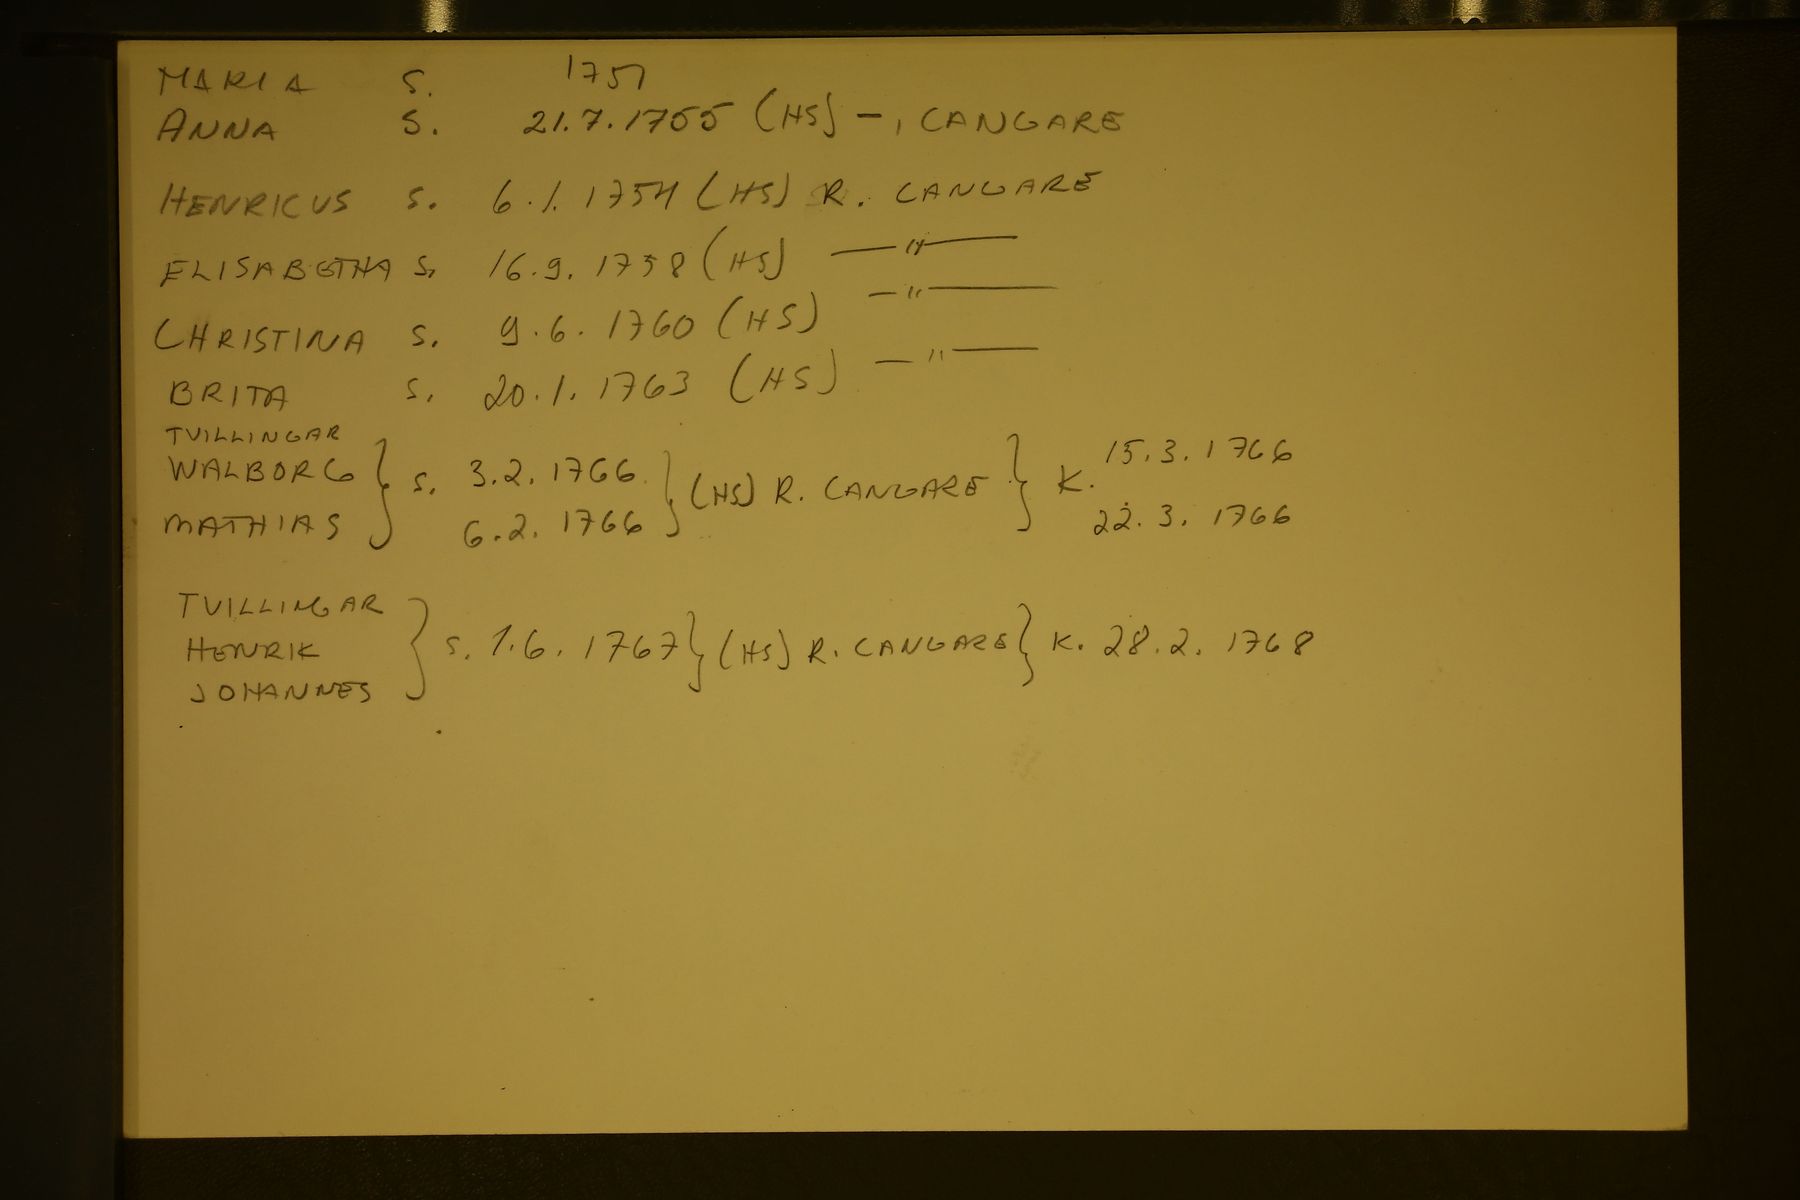 MARIA S. 1751
ANNA S. 21.7.1755 (HS) –, CANGARE
HENRICUS S. 6.1.1754 (HS) R. CANGARE
ELISABETHA S. 16.9.1758 (HS) —"—
CHRISTINA S. 9.6.1760 (HS) —"—
BRITA S. 20.1.1763 (HS) —"—
TVILLINGAR
WALBORG } S. 3.2.1766 } (HS) R. CANGARE } K. 15.3.1766
MATHIAS 6.2.1766 22.3.1766
TVILLINGAR
HENRIK } S. 1.6.1767 } (HS) R. CANGARE } K. 28.2.1768
JOHANNES